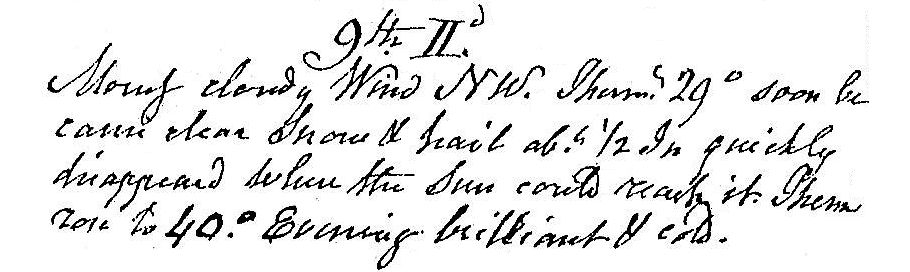 9th II.d
Morng cloudy Wind NW. Therm.r 29° soon be
came clear Snow & hail ab.t 1/2 In quickly
disappeard when the Sun could reach it. Therm
rose to 40.° Evening brilliant & cold.